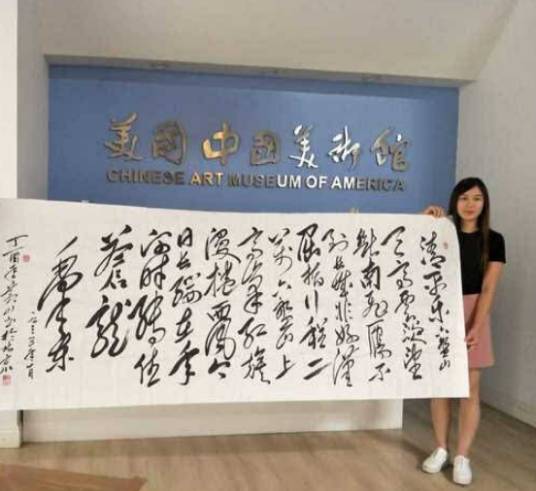 美國中國美術館
CHINESE ART MUSEUM OF AMERICA
清平乐六盘山
天高雲淡望
断南飛雁不
到长城非好漢
屈指行程二
萬六盘山上
高峰红旗
漫捲西風今
日长缨在手
何時縛住
蒼龍
毛泽东